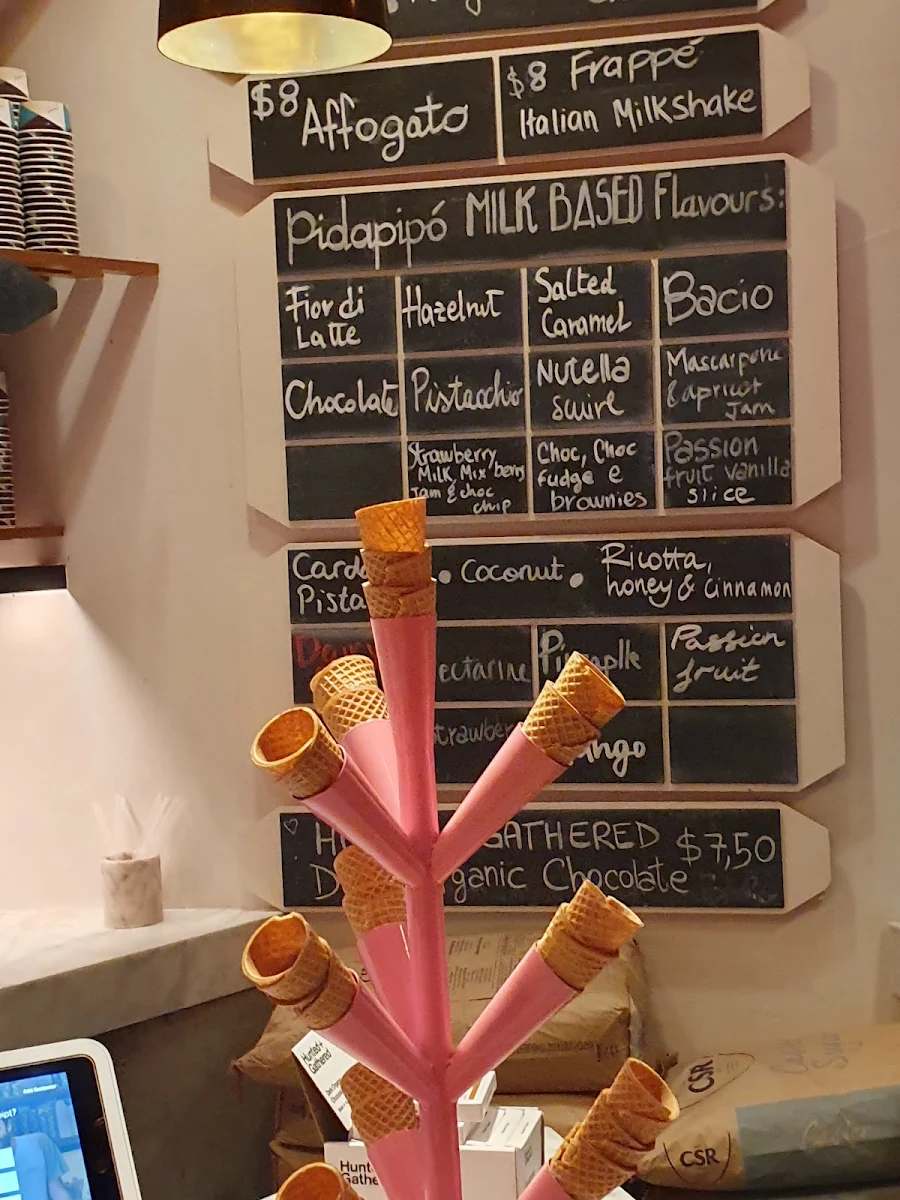 $8 Affogato
$8 Frappé
Italian Milkshake
Pidapipó MILK BASED Flavours:
Fior di
Latte
Hazelnut
Salted
Caramel
Bacio
Chocolate
Pistacchio
Nutella
swirl
Mascarpone
& apricot
Jam
Strawberry
Milk, Mix berry
Jam & choc
chip
Choc, Choc
fudge e
brownies
Passion
fruit vanilla
slice
Card
Pista
• Coconut •
Ricotta,
honey & Cinnamon
ectarine
Passion
fruit
trawber
ngo
♡ H GATHERED $7,50
D ganic Chocolate
Hunted+
Gathered
Hunt
Gathe
CSR
CSR